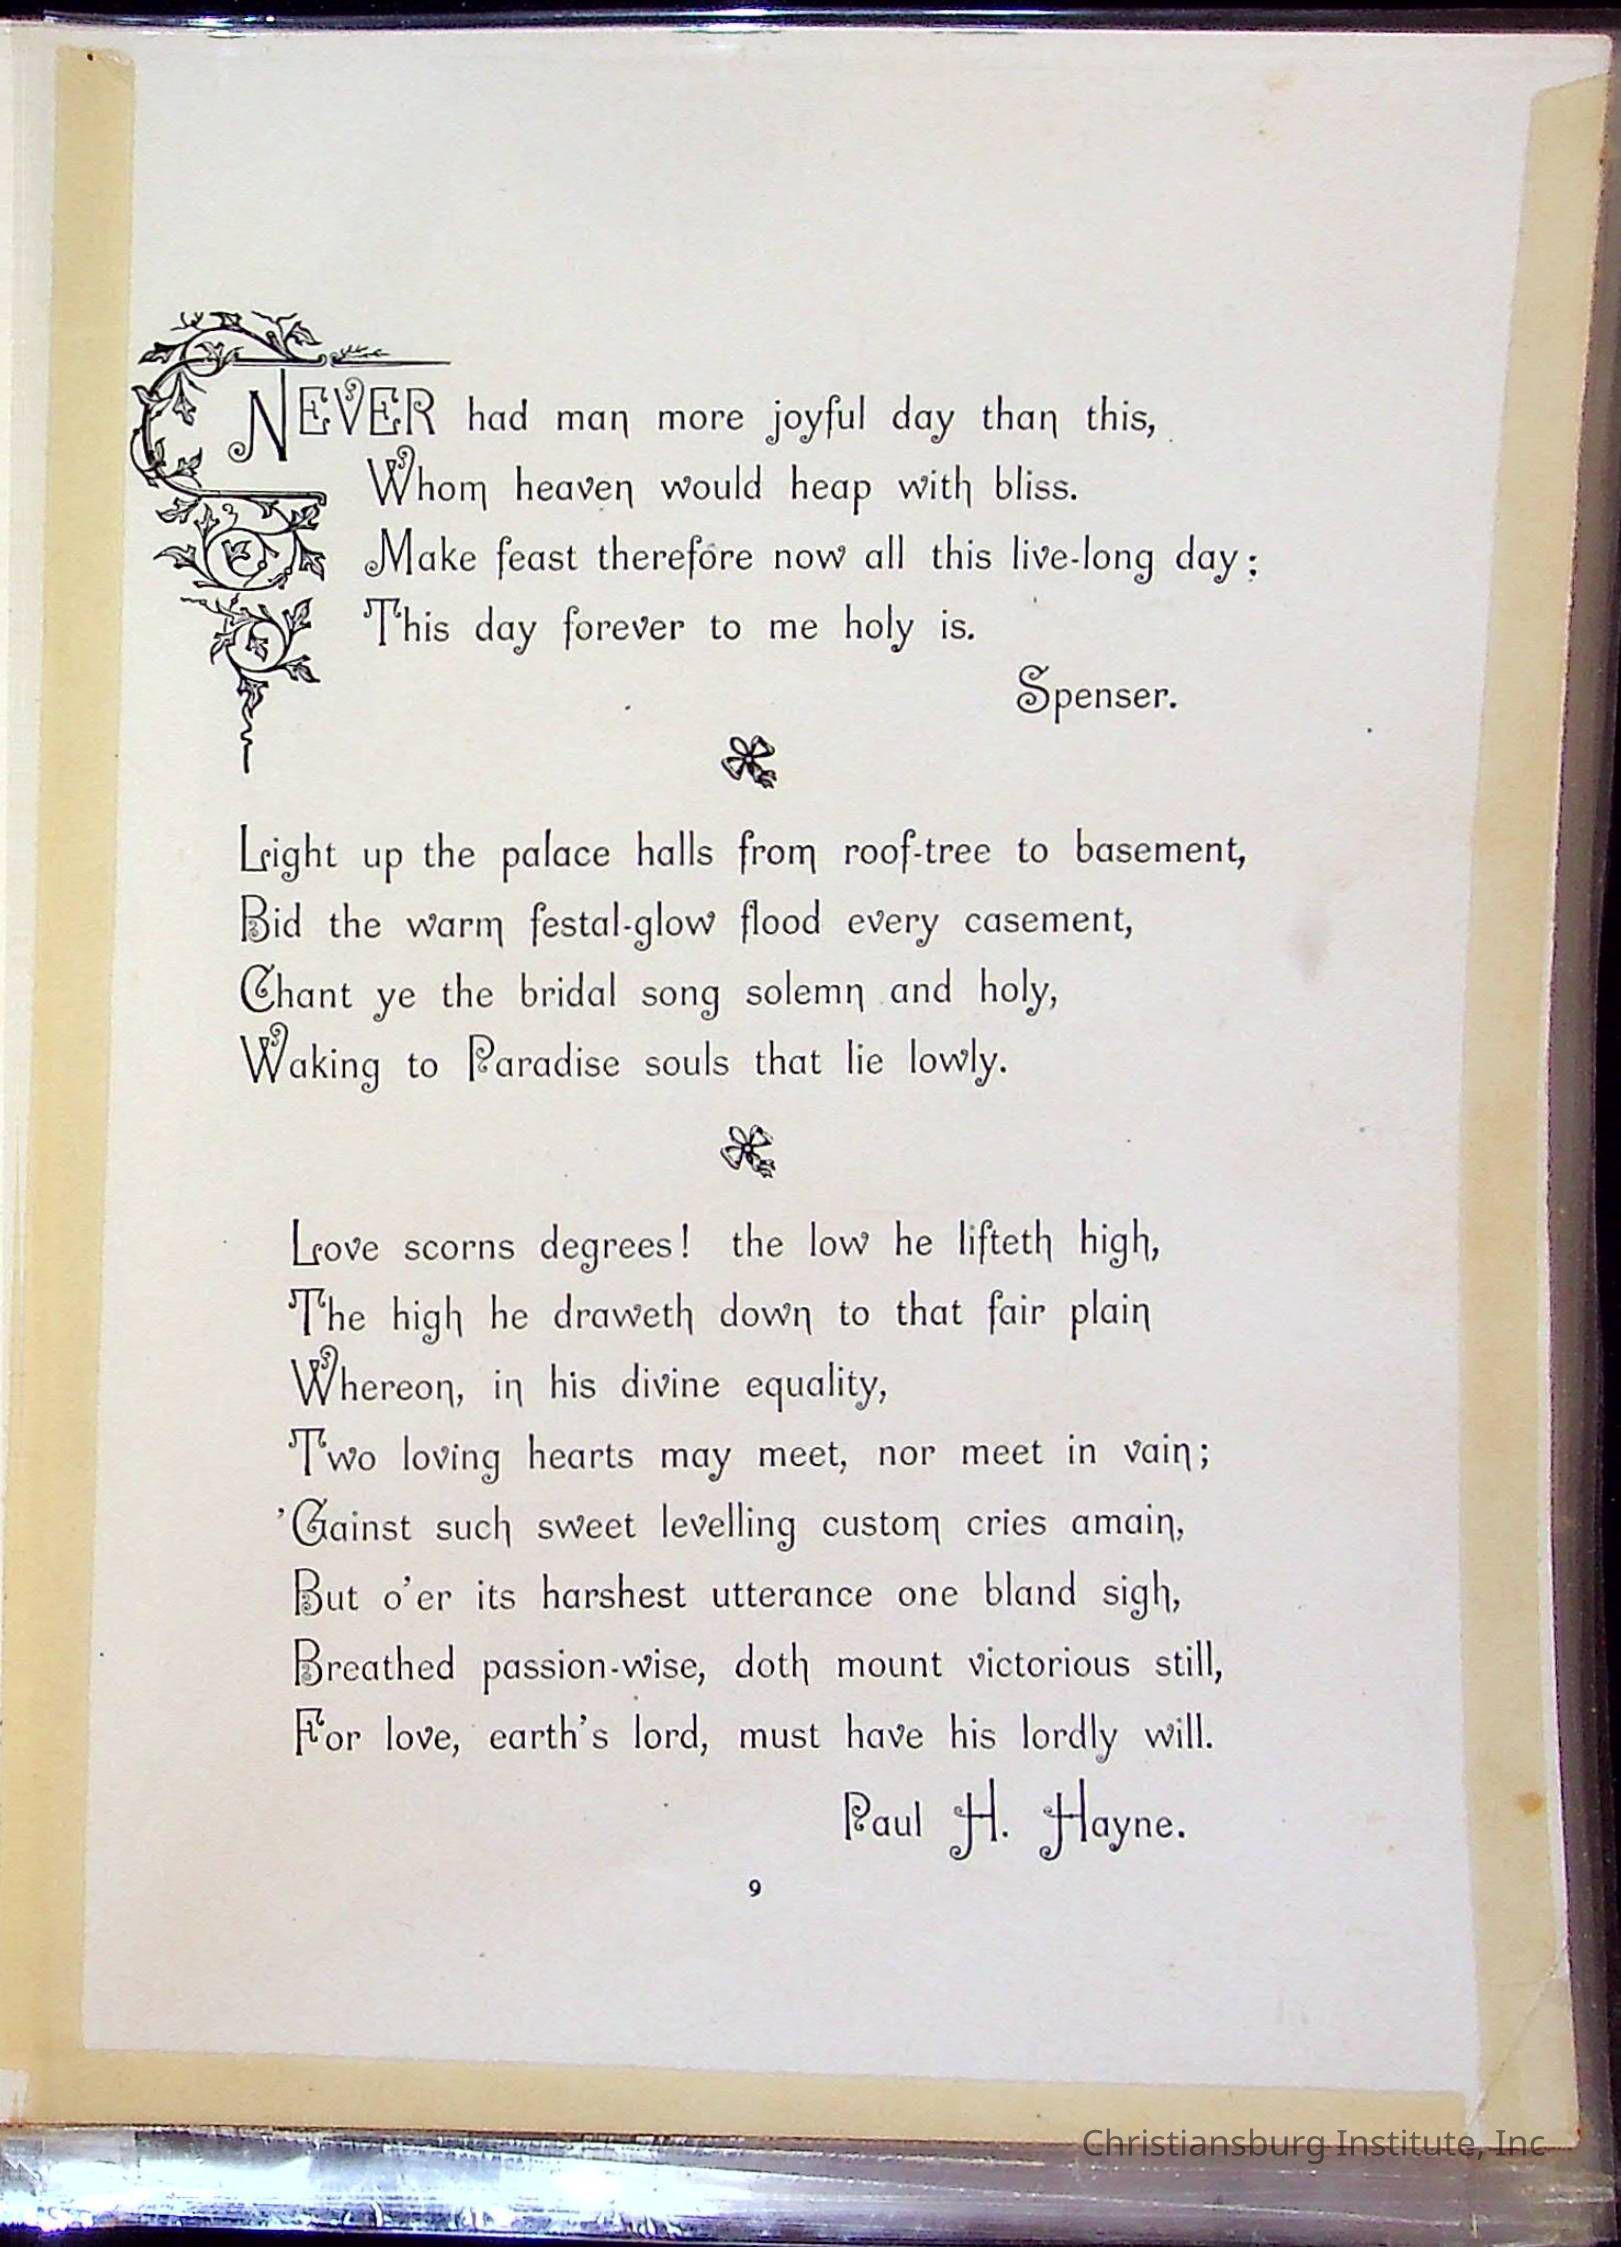 NEVER had man more joyful day than this,
Whom heaven would heap with bliss.
Make feast therefore now all this live-long day;
This day forever to me holy is.
Spenser.
Light up the palace halls from roof-tree to basement,
Bid the warm festal-glow flood every casement,
Chant ye the bridal song solemn and holy,
Waking to Paradise souls that lie lowly.
Love scorns degrees! the low he lifteth high,
The high he draweth down to that fair plain
Whereon, in his divine equality,
Two loving hearts may meet, nor meet in vain;
'Gainst such sweet levelling custom cries amain,
But o'er its harshest utterance one bland sigh,
Breathed passion-wise, doth mount victorious still,
For love, earth's lord, must have his lordly will.
Paul H. Hayne.
9
Christiansburg Institute, Inc